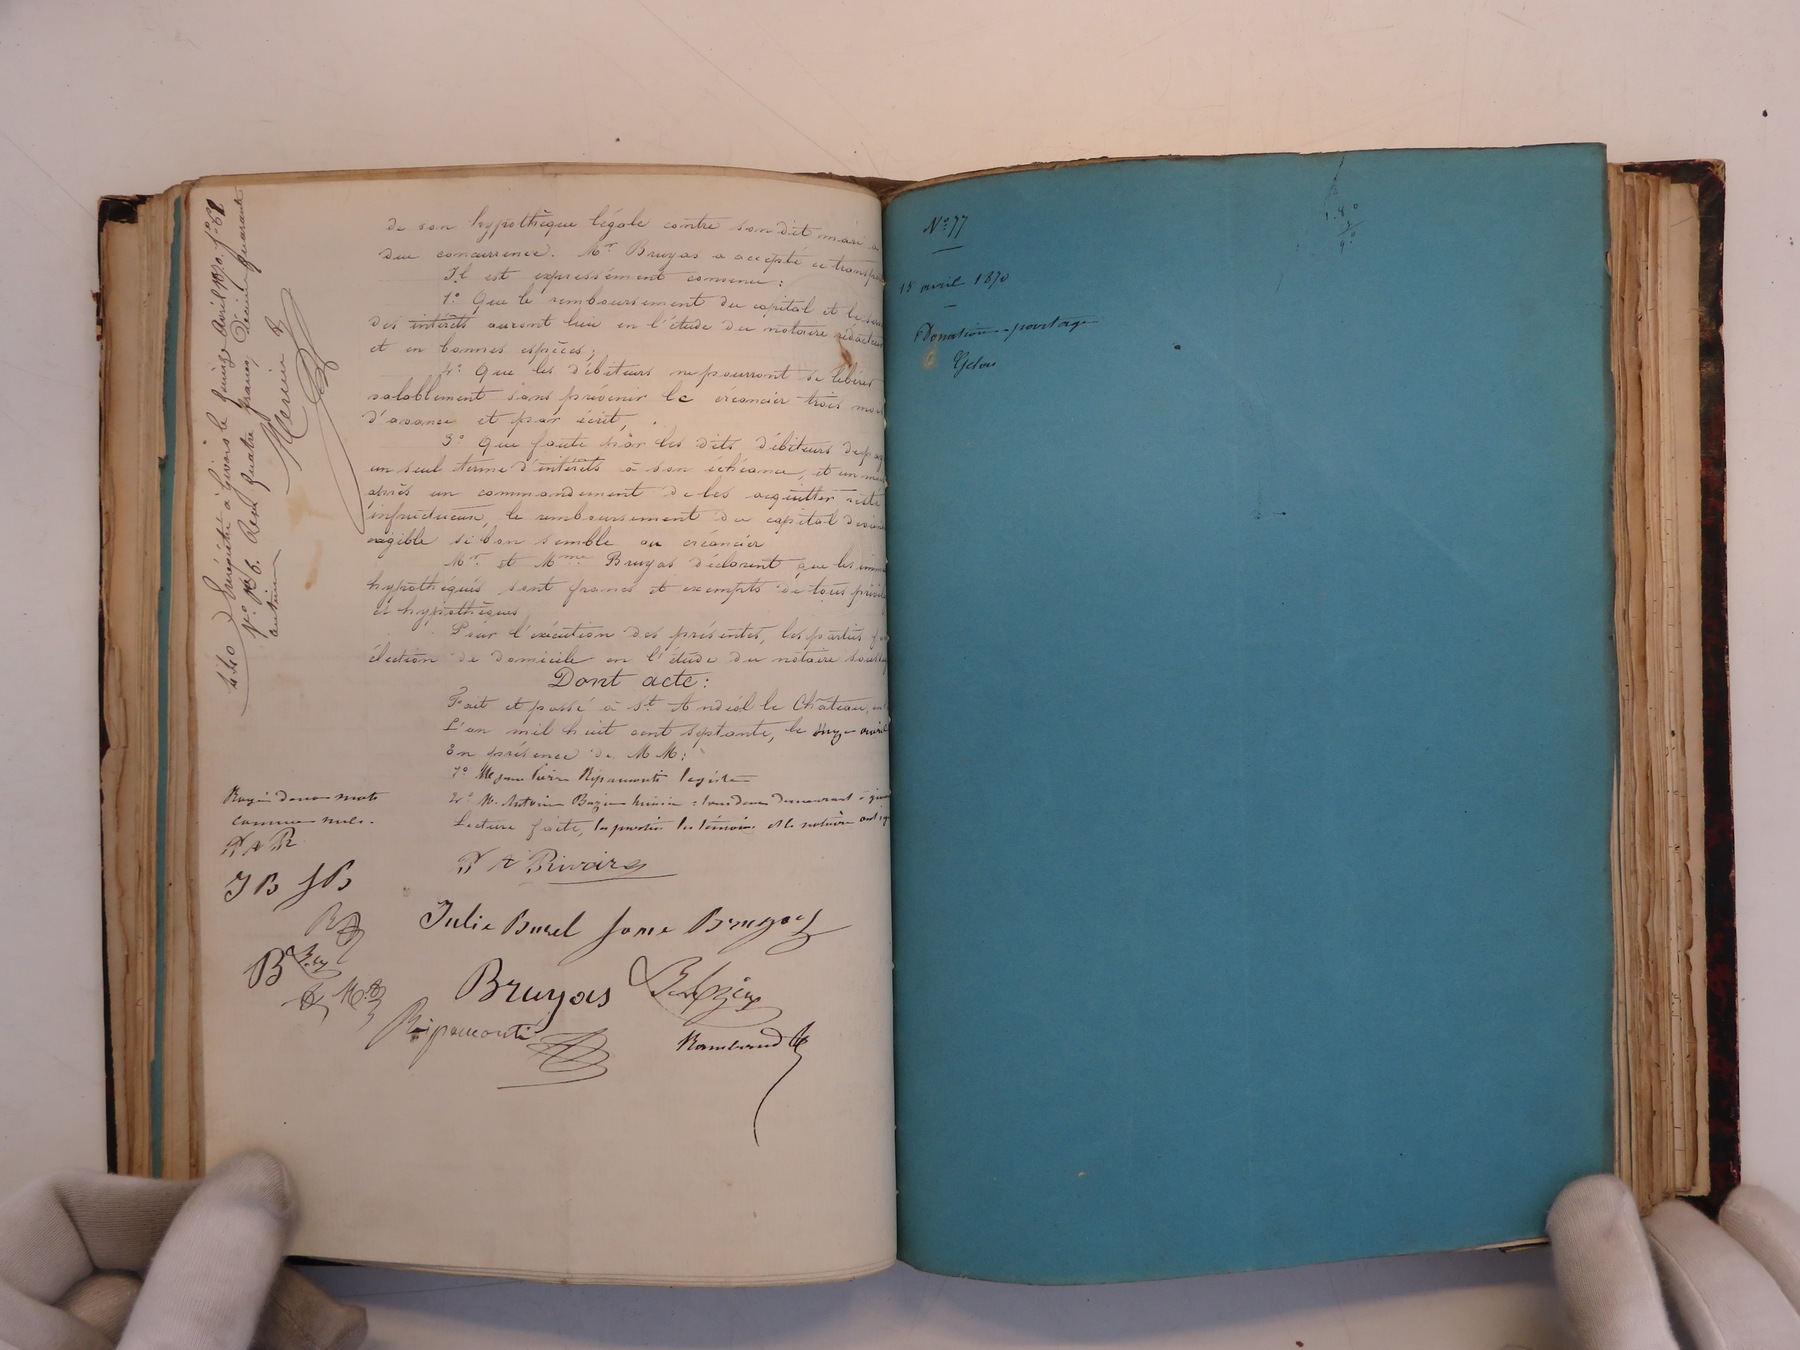 de son hypothèque légale contre son dit mari à
due concurrence. Mr Bruyas a accepté ce transport
Il est expressément convenu :
1° Que le remboursement du capital et le
des intérêts auront lieu en l'étude du notaire rédacteur
et en bonnes espèces;
2° Que les débiteurs ne pourront se libérer
valablement sans prévenir le créancier trois mois
d'avance et par écrit,
3° Que faute par les dits débiteurs de payer
un seul terme d'intérêts à son échéance, et un mois
après un commandement de les acquitter resté
infructueux, le remboursement du capital
exigible si bon semble au créancier
Mr et Mme Bruyas déclarent que les
hypothéqués sont francs et exempts de tous
et hypothèques
Pour l'exécution des présentes, les parties
élection de domicile en l'étude du notaire
Dont acte :
Fait et passé à St Andéol le Château,
L'an mil huit cent septante, le onze avril
En présence de MM :
1° Pierre Ripamonti
2° M. Antoine tous deux demeurant à
Lecture faite, les parties les témoins et le notaire ont
Rayé deux mots
comme nuls.
P A R
JB JB
P A Rivoire
Julie Burel Bruyas
Bruyas
Ripamonti
Enregistré à Givors le quinze avril 1870, f° 61
v° c. 6. Reçu quatre francs, décime quarante
centimes
Mercier
4.40
N° 77
15 avril 1870
Donation-partage
1.8°
9°